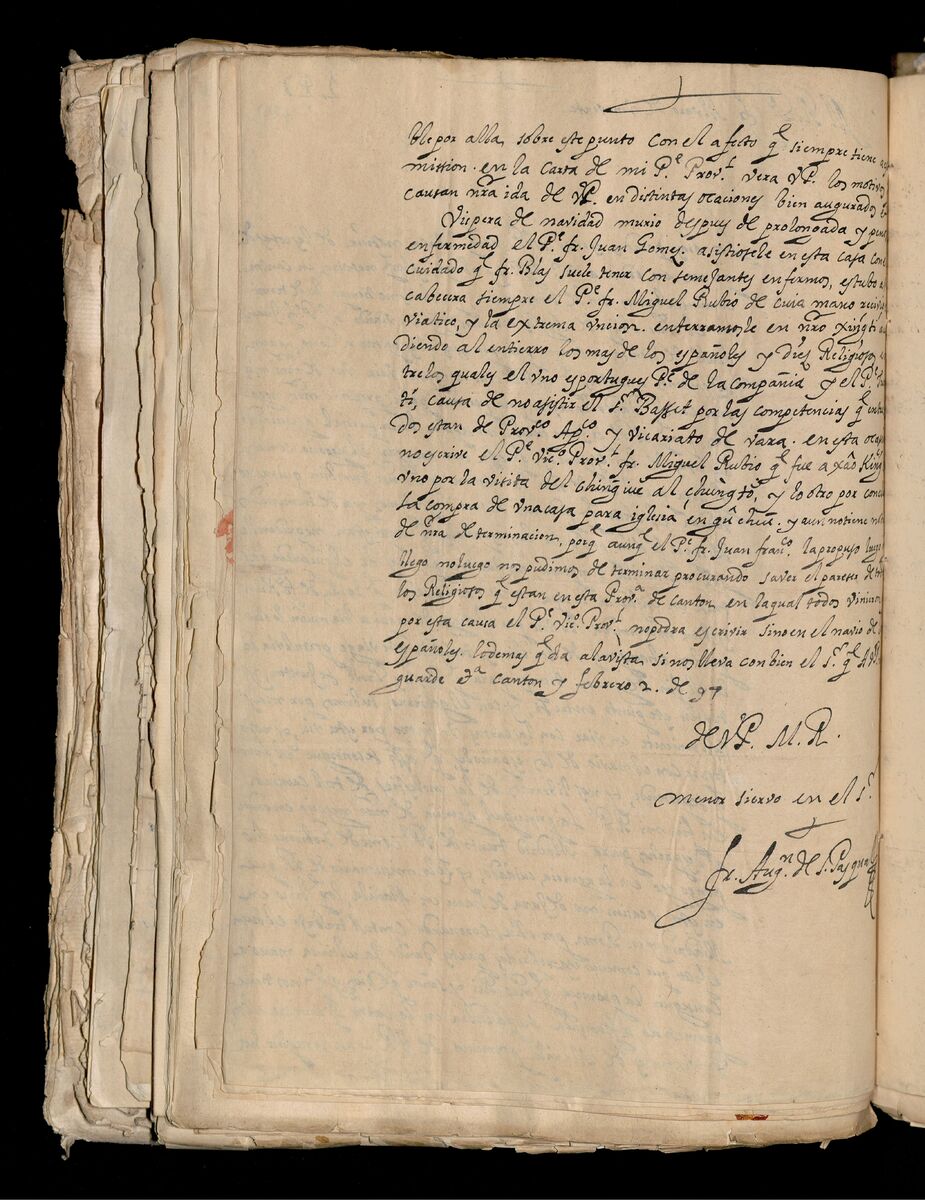 ble por alla, sobre este punto con el afecto q̃ siempre tiene
mission. en la carta de mi Pe. Prov.l vera VP. los motivos
causan nr̃a ida de VP. en distintas ocaciones bien augurados
Vispera de navidad murio despues de prolongada y
enfermedad el Pe. fr. Juan Gomez asistiosele en esta casa con el
cuidado q̃ fr. Blas suele tener con semejantes enfermos, estubo a
cabecera siempre el Pe. fr. Miguel Rubio de cuia mano
viatico, y la extrema vncion. enterramosle en nr̃o
diendo al entierro los mas de los españoles y diez Religiosos
tre los quales el vno es portugues Pe. de la compañia y el Pe.
causa de no asistir el Sr. Basset por las competencias q̃
dos estan de Prov.co Ap.co y vicariato de vara. en esta
no escrive el Pe. vico. Prov.l fr. Miguel Rubio q̃ fue a xâo
vno por la visita del chingive al y lo otro por
la compra de vna casa para iglesia en y aun no tiene
de nr̃a determinacion, porq̃ aunq̃ el Pe. fr. Juan franco. la propuso luego
llego no luego nos pudimos determinar procurando saver el parecer de
los Religiosos q̃ estan en esta Prov.a de canton en la qual todos
por esta causa el Pe. Vico. Prov.l no podra escrivir sino en el navio de
españoles. lo demas q̃ da a la vista si nos lleva con bien el Sr. q̃ a
guarde &a canton y febrero 2. de 97
de VP. M. R.
menor siervo en el Sr.
fr. Augn. de S. Pasqual